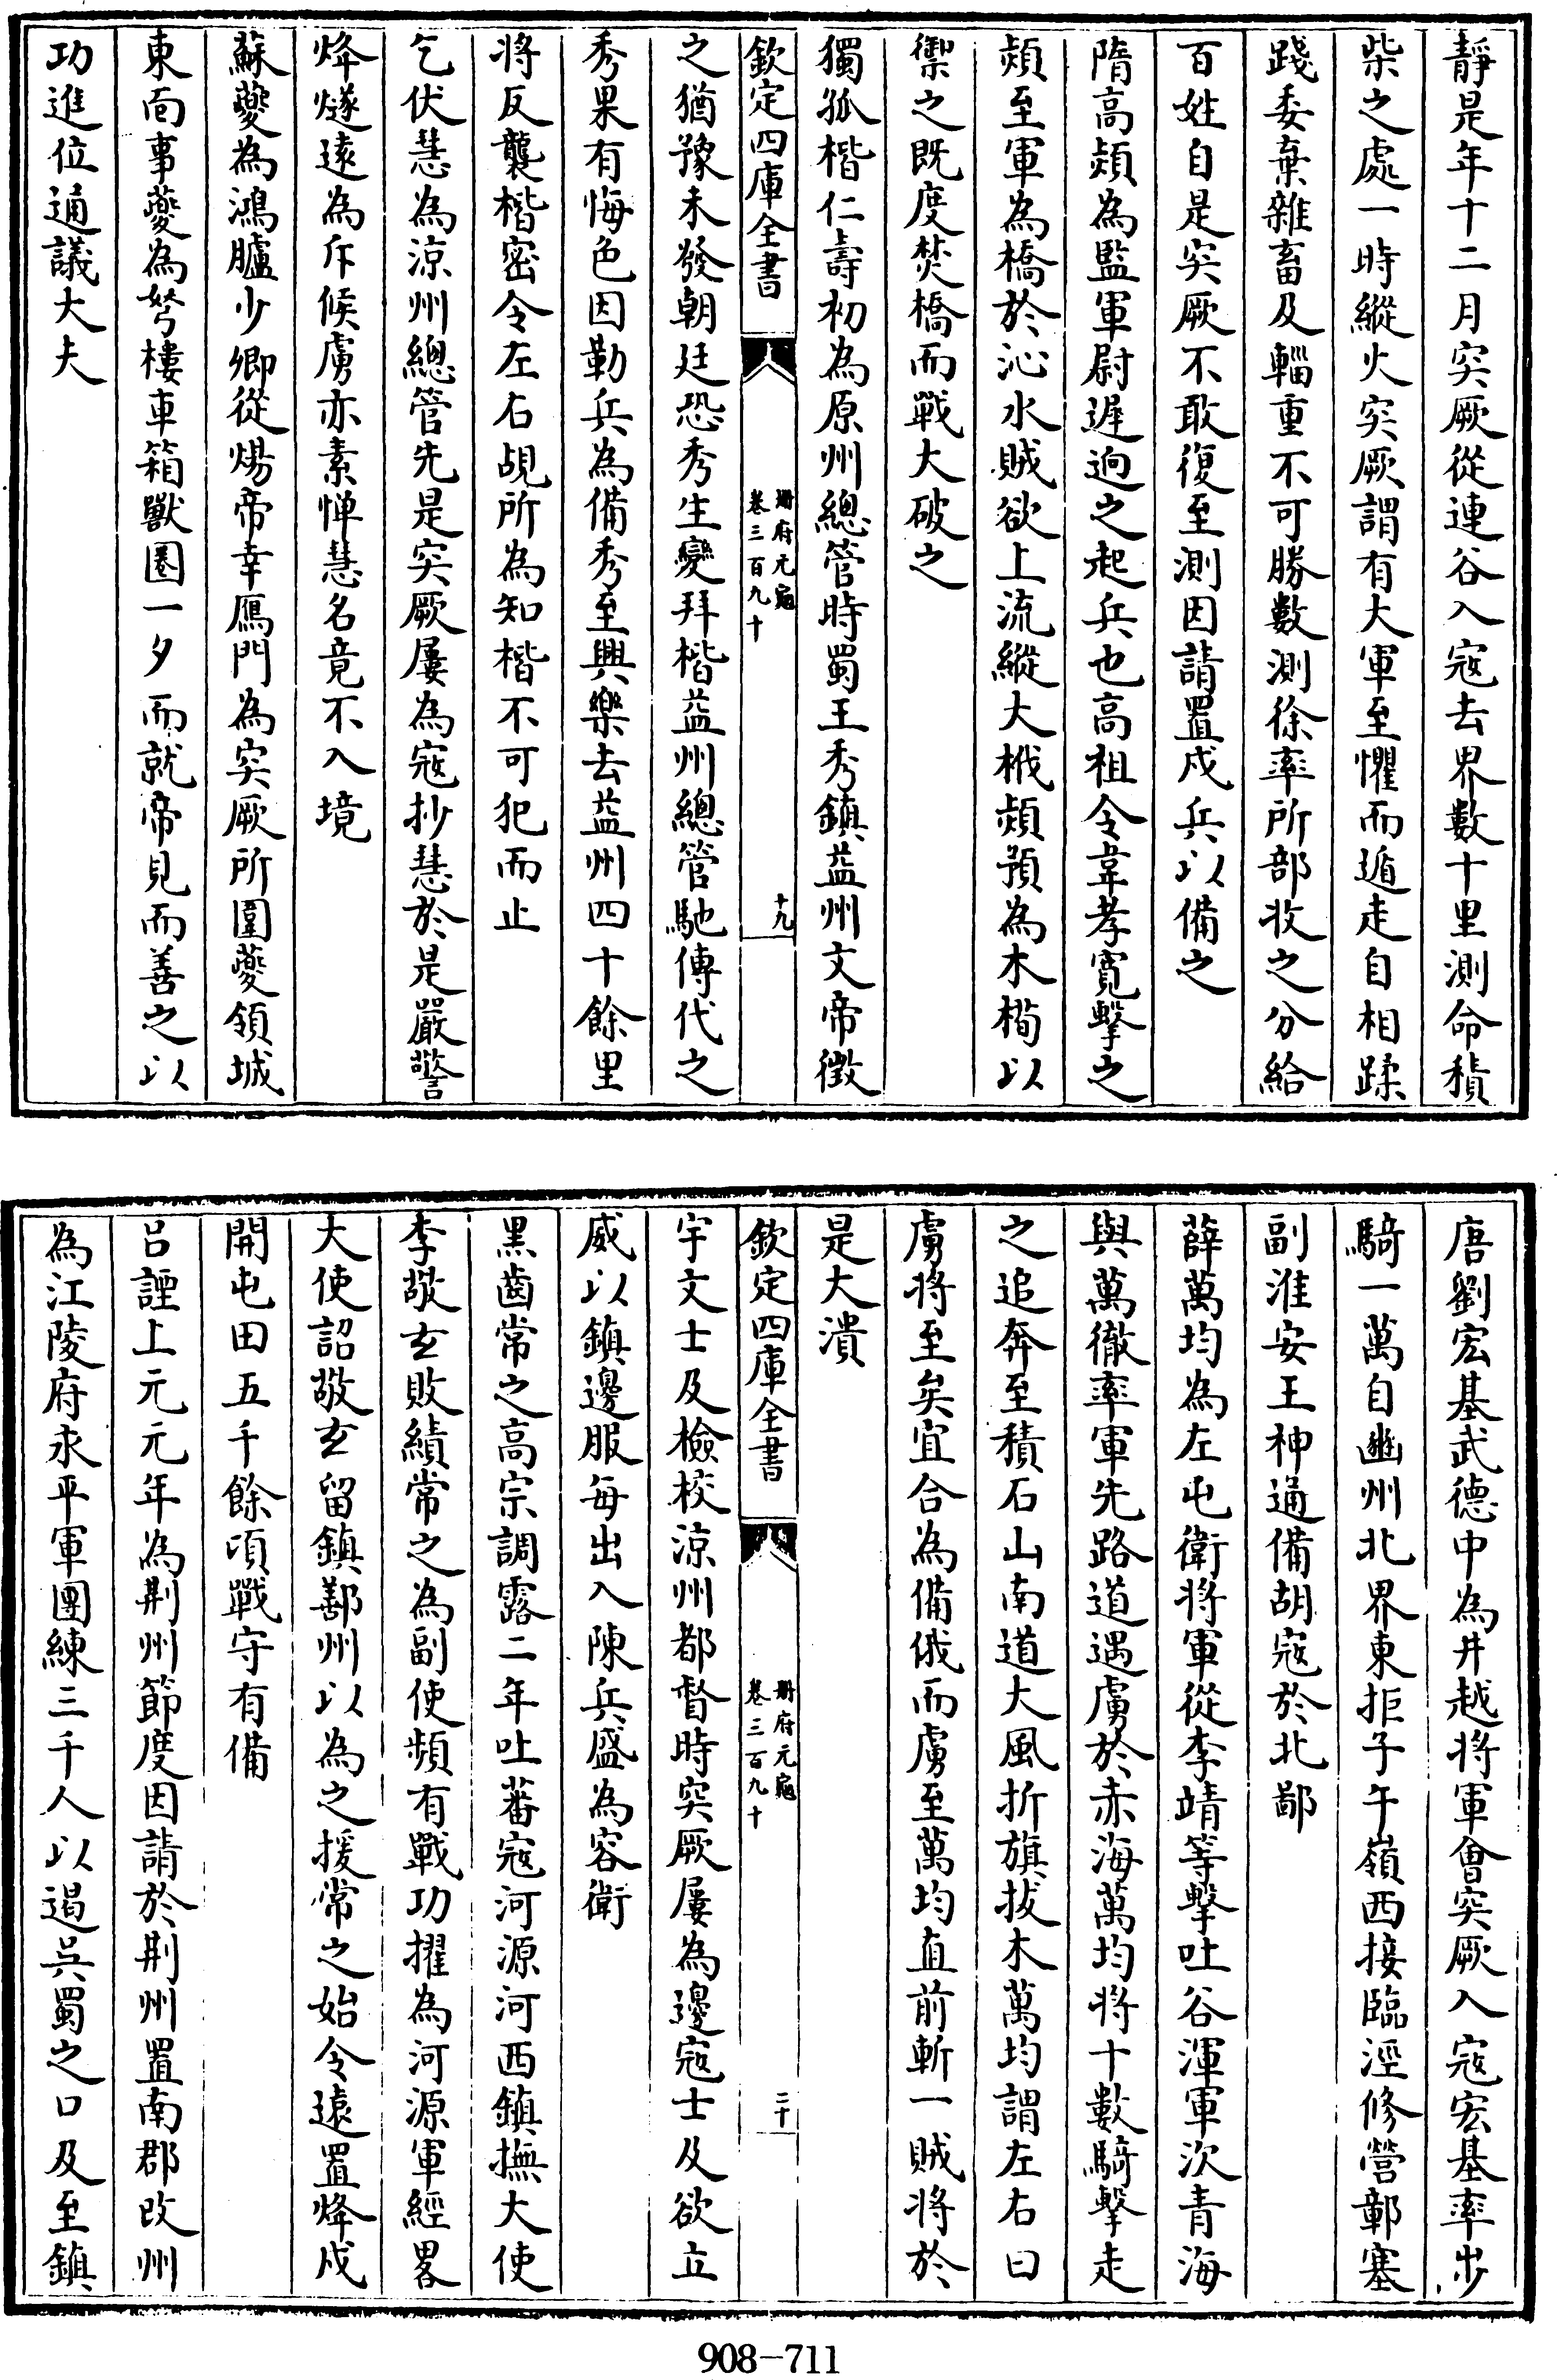 靜是年十二月突厥從連谷入寇去界數十里測命積
柴之處一時縱火突厥謂有大軍至懼而遁走自相蹂
踐委棄雜畜及輜重不可勝數測徐率所部收之分給
百姓自是突厥不敢復至測因請置戍兵以備之
隋高熲為監軍尉遲逈之起兵也高祖令韋孝寛擊之
熲至軍為橋於沁水賊欲上流縱大栰熲預為木㺃以
禦之既度焚橋而戰大破之
獨孤楷仁壽初為原州總管時蜀王秀鎮益州文帝徵
欽定四庫全書
冊府元龜
卷三百九十
十九
之猶豫未發朝廷恐秀生變拜楷益州總管馳傳代之
秀果有悔色因勒兵為備秀至興樂去益州四十餘里
将反襲楷密令左右覘所為知楷不可犯而止
乞伏慧為涼州總管先是突厥屢為寇抄慧於是嚴警
烽燧遠為斥候虜亦素憚慧名竟不入境
蘇夔為鴻臚少卿從煬帝幸鴈門為突厥所圍夔領城
東面事夔為弩樓車箱獸圈一夕而就帝見而善之以
功進位通議大夫
唐劉宏基武德中為井越将軍會突厥入寇宏基率步
騎一萬自豳州北界東拒子午嶺西接臨涇修營鄣塞
副淮安王神通備胡寇於北鄙
薛萬均為左屯衛将軍從李靖等擊吐谷渾軍次青海
與萬徹率軍先路道遇虜於赤海萬均将十數騎擊走
之追奔至積石山南道大風折旗拔木萬均謂左右曰
虜将至矣宜合為備俄而虜至萬均直前斬一賊将於
是大潰
欽定四庫全書
冊府元龜
卷三百九十
二十
宇文士及檢校涼州都督時突厥屢為邊寇士及欲立
威以鎮邊服每出入陳兵盛為容衛
黑齒常之高宗調露二年吐蕃寇河源河西鎮撫大使
李敬玄敗績常之為副使頻有戰功擢為河源軍經畧
大使詔敬玄留鎮鄯州以為之援常之始令遠置烽戍
開屯田五千餘頃戰守有備
吕諲上元元年為荆州節度因請於荆州置南郡改州
為江陵府永平軍團練三千人以遏吳蜀之口及至鎮
908-711